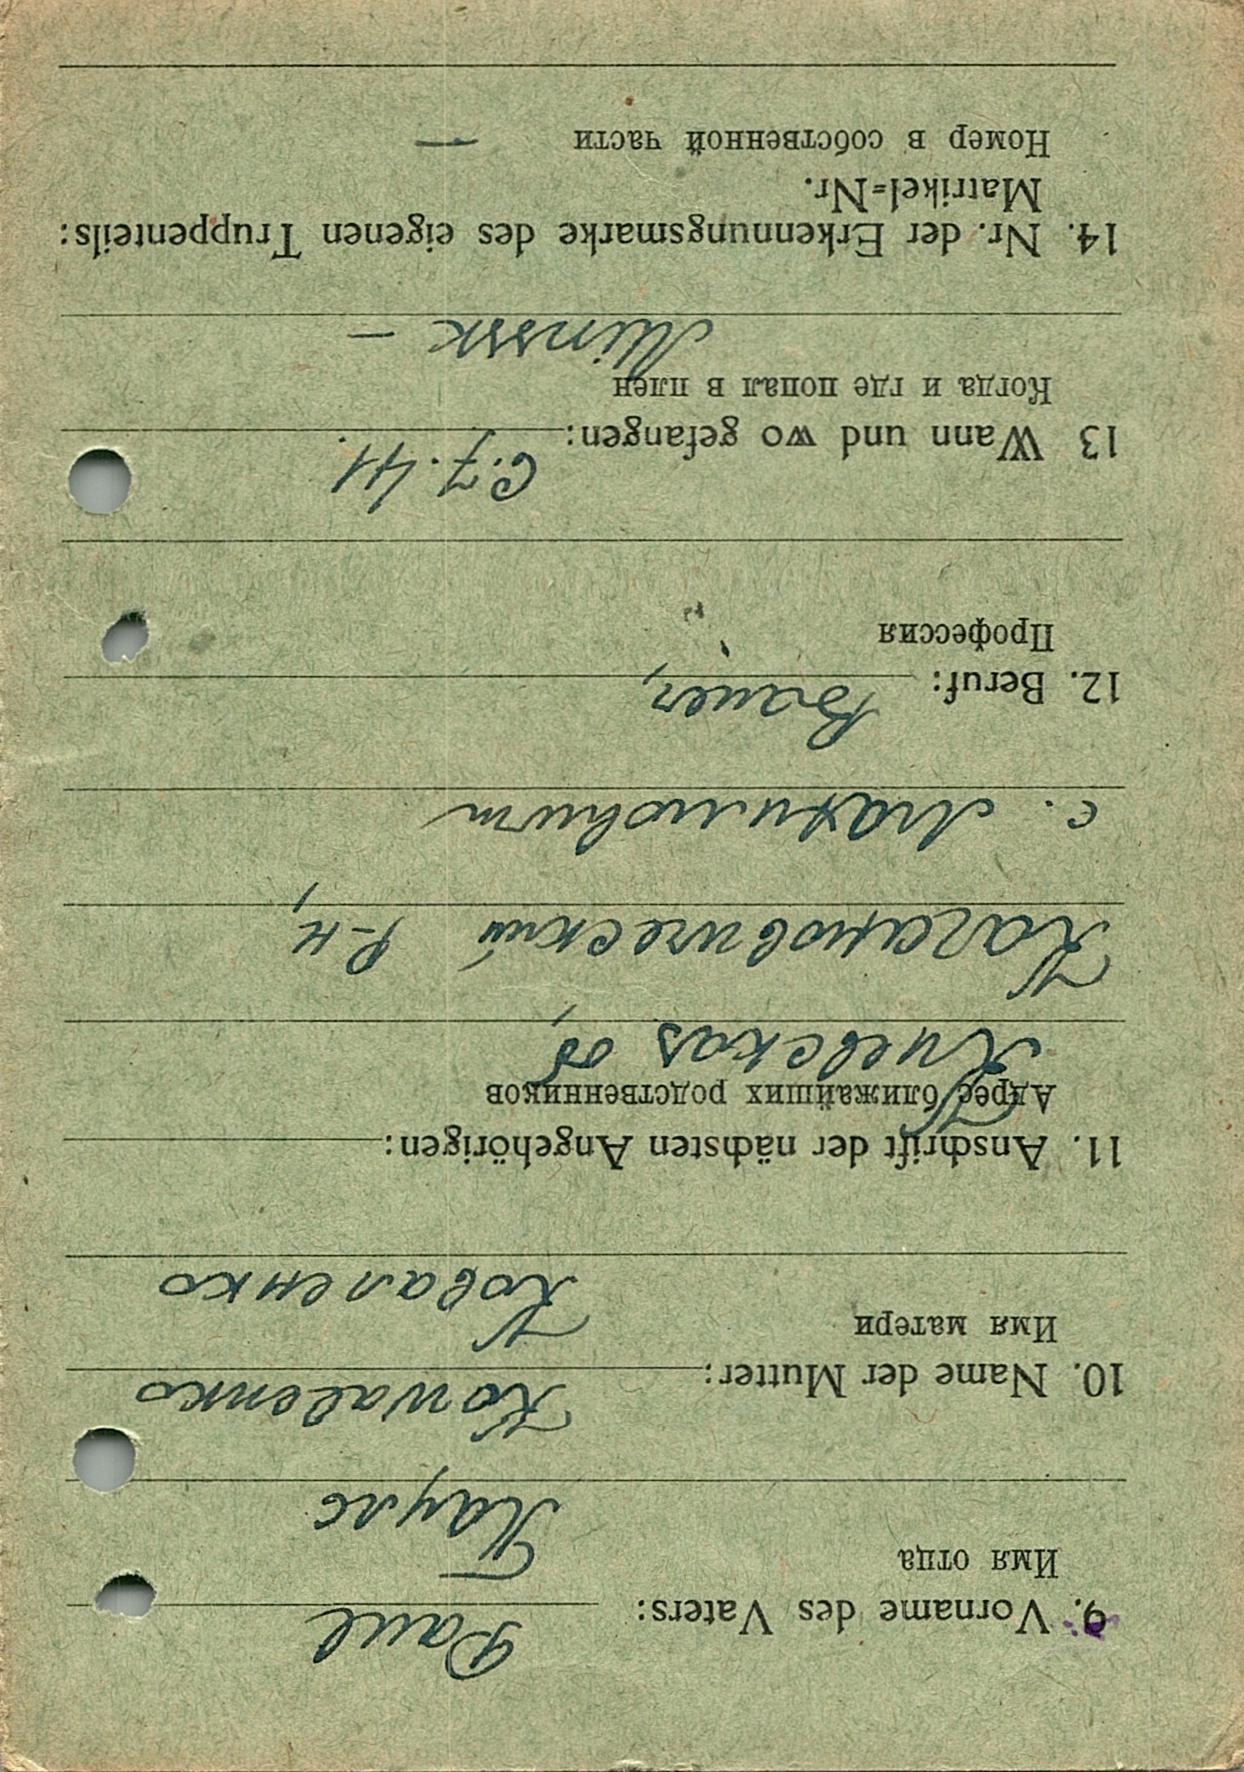 9. Vorname des Vaters: Paul
Имя отца Пауль
10. Name der Mutter: Kowalenko
Имя матери Коваленко
11. Anschrift der nächsten Angehörigen:
Адрес ближайших родственников
Киевская об,
Кагановический р-н,
с.
12. Beruf: Bauer,
Профессия
13 Wann und wo gefangen: 6.7.41.
Когда и где попал в плен Minsk –
14. Nr. der Erkennungsmarke des eigenen Truppenteils:
Matrikel=Nr.
Номер в собственной части —